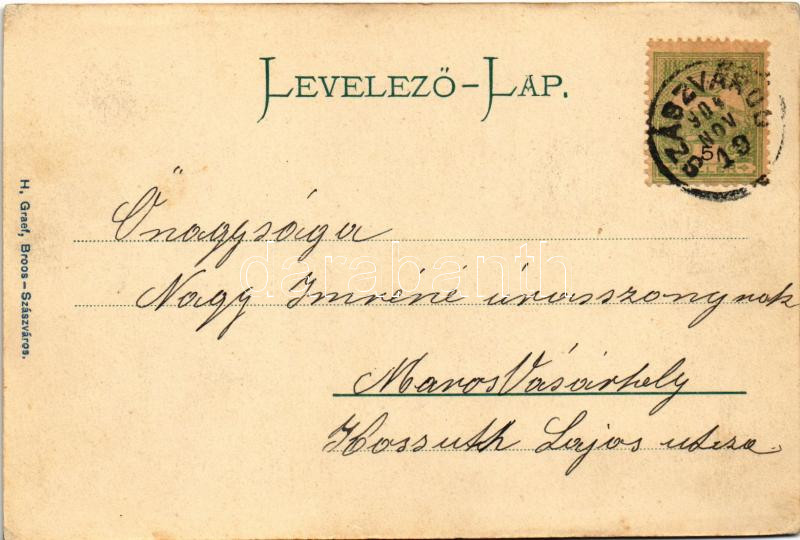 LEVELEZŐ-LAP.
SZÁSZVÁROS
904
NOV
19
5
Őnagysága
Nagy Imréné úrasszonynak
MarosVásárhely
Kossuth Lajos utcza.
H. Graef, Broos–Szászváros.
darabanth